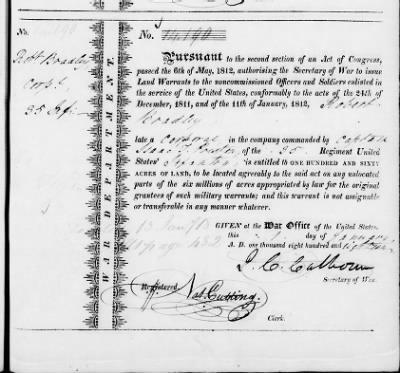 No.
Robt Bradley
Corpl
35 Inf
WAR DEPARTMENT.
No. 14190
Pursuant to the second section of an Act of Congress,
passed the 6th of May, 1812, authorising the Secretary of War to issue
Land Warrants to the noncommissioned Officers and Soldiers enlisted in
the service of the United States, conformably to the acts of the 24th of
December, 1811, and of the 11th of January, 1812, Robert
Bradley
late a Corporal in the company commanded by Captain
of the 35 Regiment United
States' Infantry is entitled to ONE HUNDRED AND SIXTY
ACRES OF LAND, to be located agreeably to the said act on any unlocated
parts of the six millions of acres appropriated by law for the original
grantees of such military warrants; and this warrant is not assignable
or transferable in any manner whatever.
GIVEN at the War Office of the United States,
this day of January
A. D. one thousand eight hundred and
J. C. Calhoun
Secretary of War.
Registered
Nat. Cutting.
Clerk.